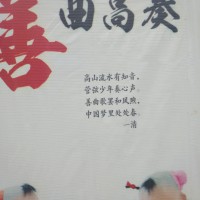 善曲高奏
高山流水有知音，
管弦少年奏心声。
善曲歌罢和风煦，
中国梦里处处春。
—清